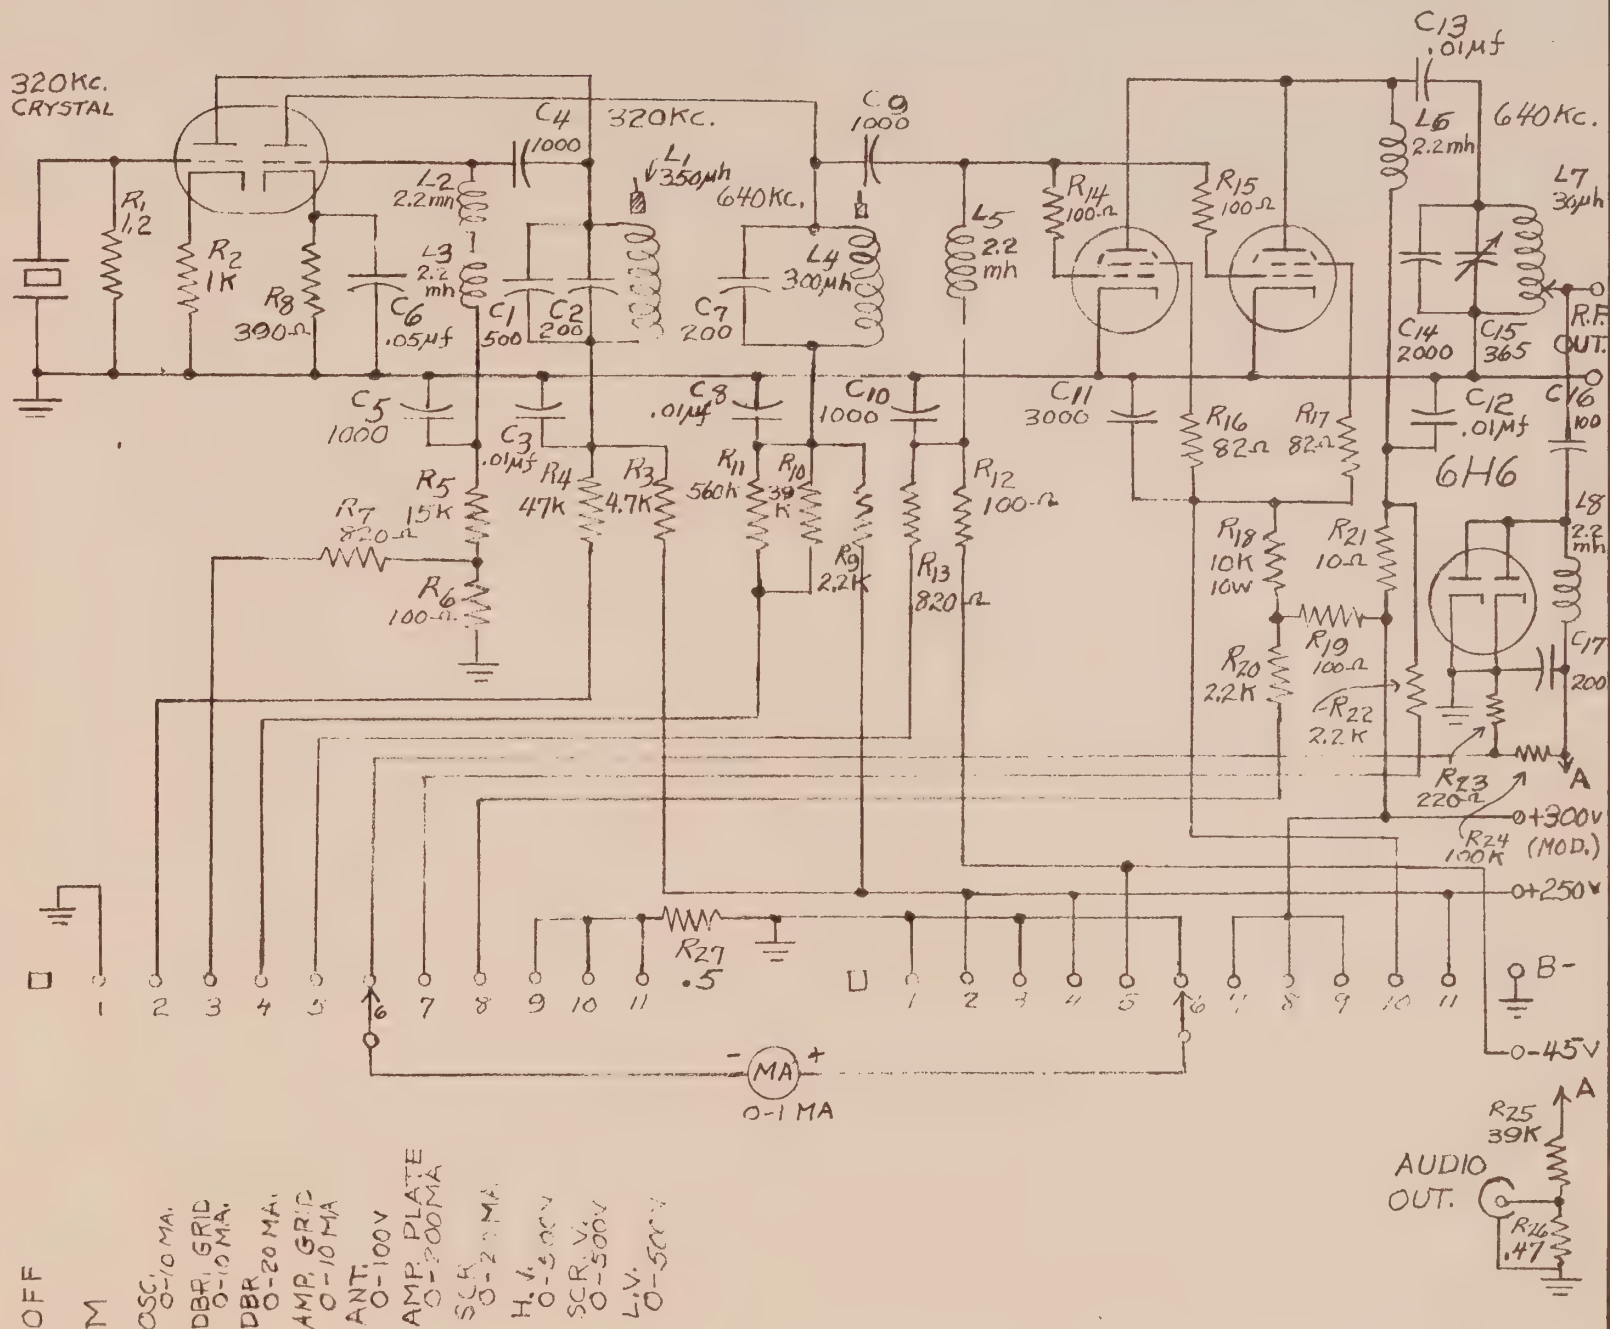 320KC.
CRYSTAL
R1
1.2
R2
1K
R8
390Ω
C6
.05µf
C4
1000
L2
2.2mh
L3
2.2
mh
C1
500
C2
200
320KC.
L1
350µh
640KC.
C7
200
L4
300µh
C9
1000
L5
2.2
mh
R14
100Ω
R15
100Ω
C13
.01µf
L6
2.2mh
640KC.
L7
30µh
C14
2000
C15
365
R.F.
OUT.
C5
1000
C3
.01µf
C8
.01µf
C10
1000
C11
3000
R16
82Ω
R17
82Ω
C12
.01µf
C16
100
6H6
R7
820Ω
R5
15K
R6
100Ω
R4
47K
R3
4.7K
R11
560K
R10
39
K
R9
2.2K
R13
820Ω
R12
100Ω
R18
10K
10W
R21
10Ω
R19
100Ω
R20
2.2K
R22
2.2K
L8
2.2
mh
C17
200
R23
220Ω
R24
100K
A
+300V
(MOD.)
+250V
R27
.5
1 2 3 4 5 6 7 8 9 10 11
1 2 3 4 5 6 7 8 9 10 11
B-
-45V
- MA +
0-1 MA
A
R25
39K
AUDIO
OUT.
R26
.47
OFF
M
OSC.
0-10 MA.
DBR. GRID
0-10 MA.
DBR
0-20 MA.
AMP. GRID
0-10 MA
ANT.
0-100V
AMP. PLATE
0-200MA
SCR
H.V.
0-500V
SCR. V.
0-500V
L.V.
0-500V